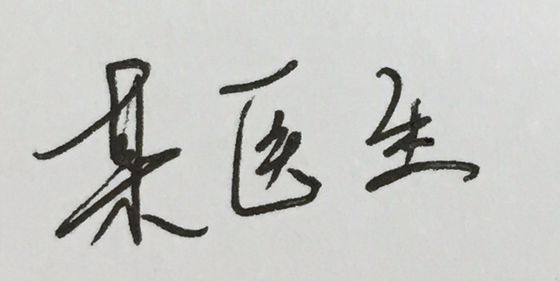 某医生